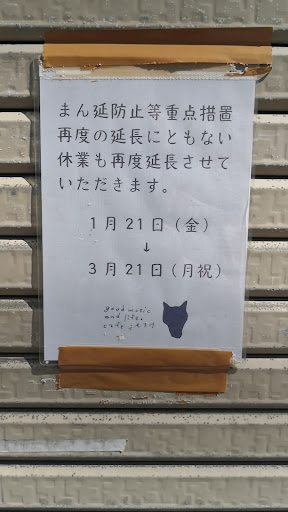 まん延防止等重点措置
再度の延長にともない
休業も再度延長させて
いただきます。
1月21日（金）
↓
3月21日（月祝）
good music
and life.
cafe